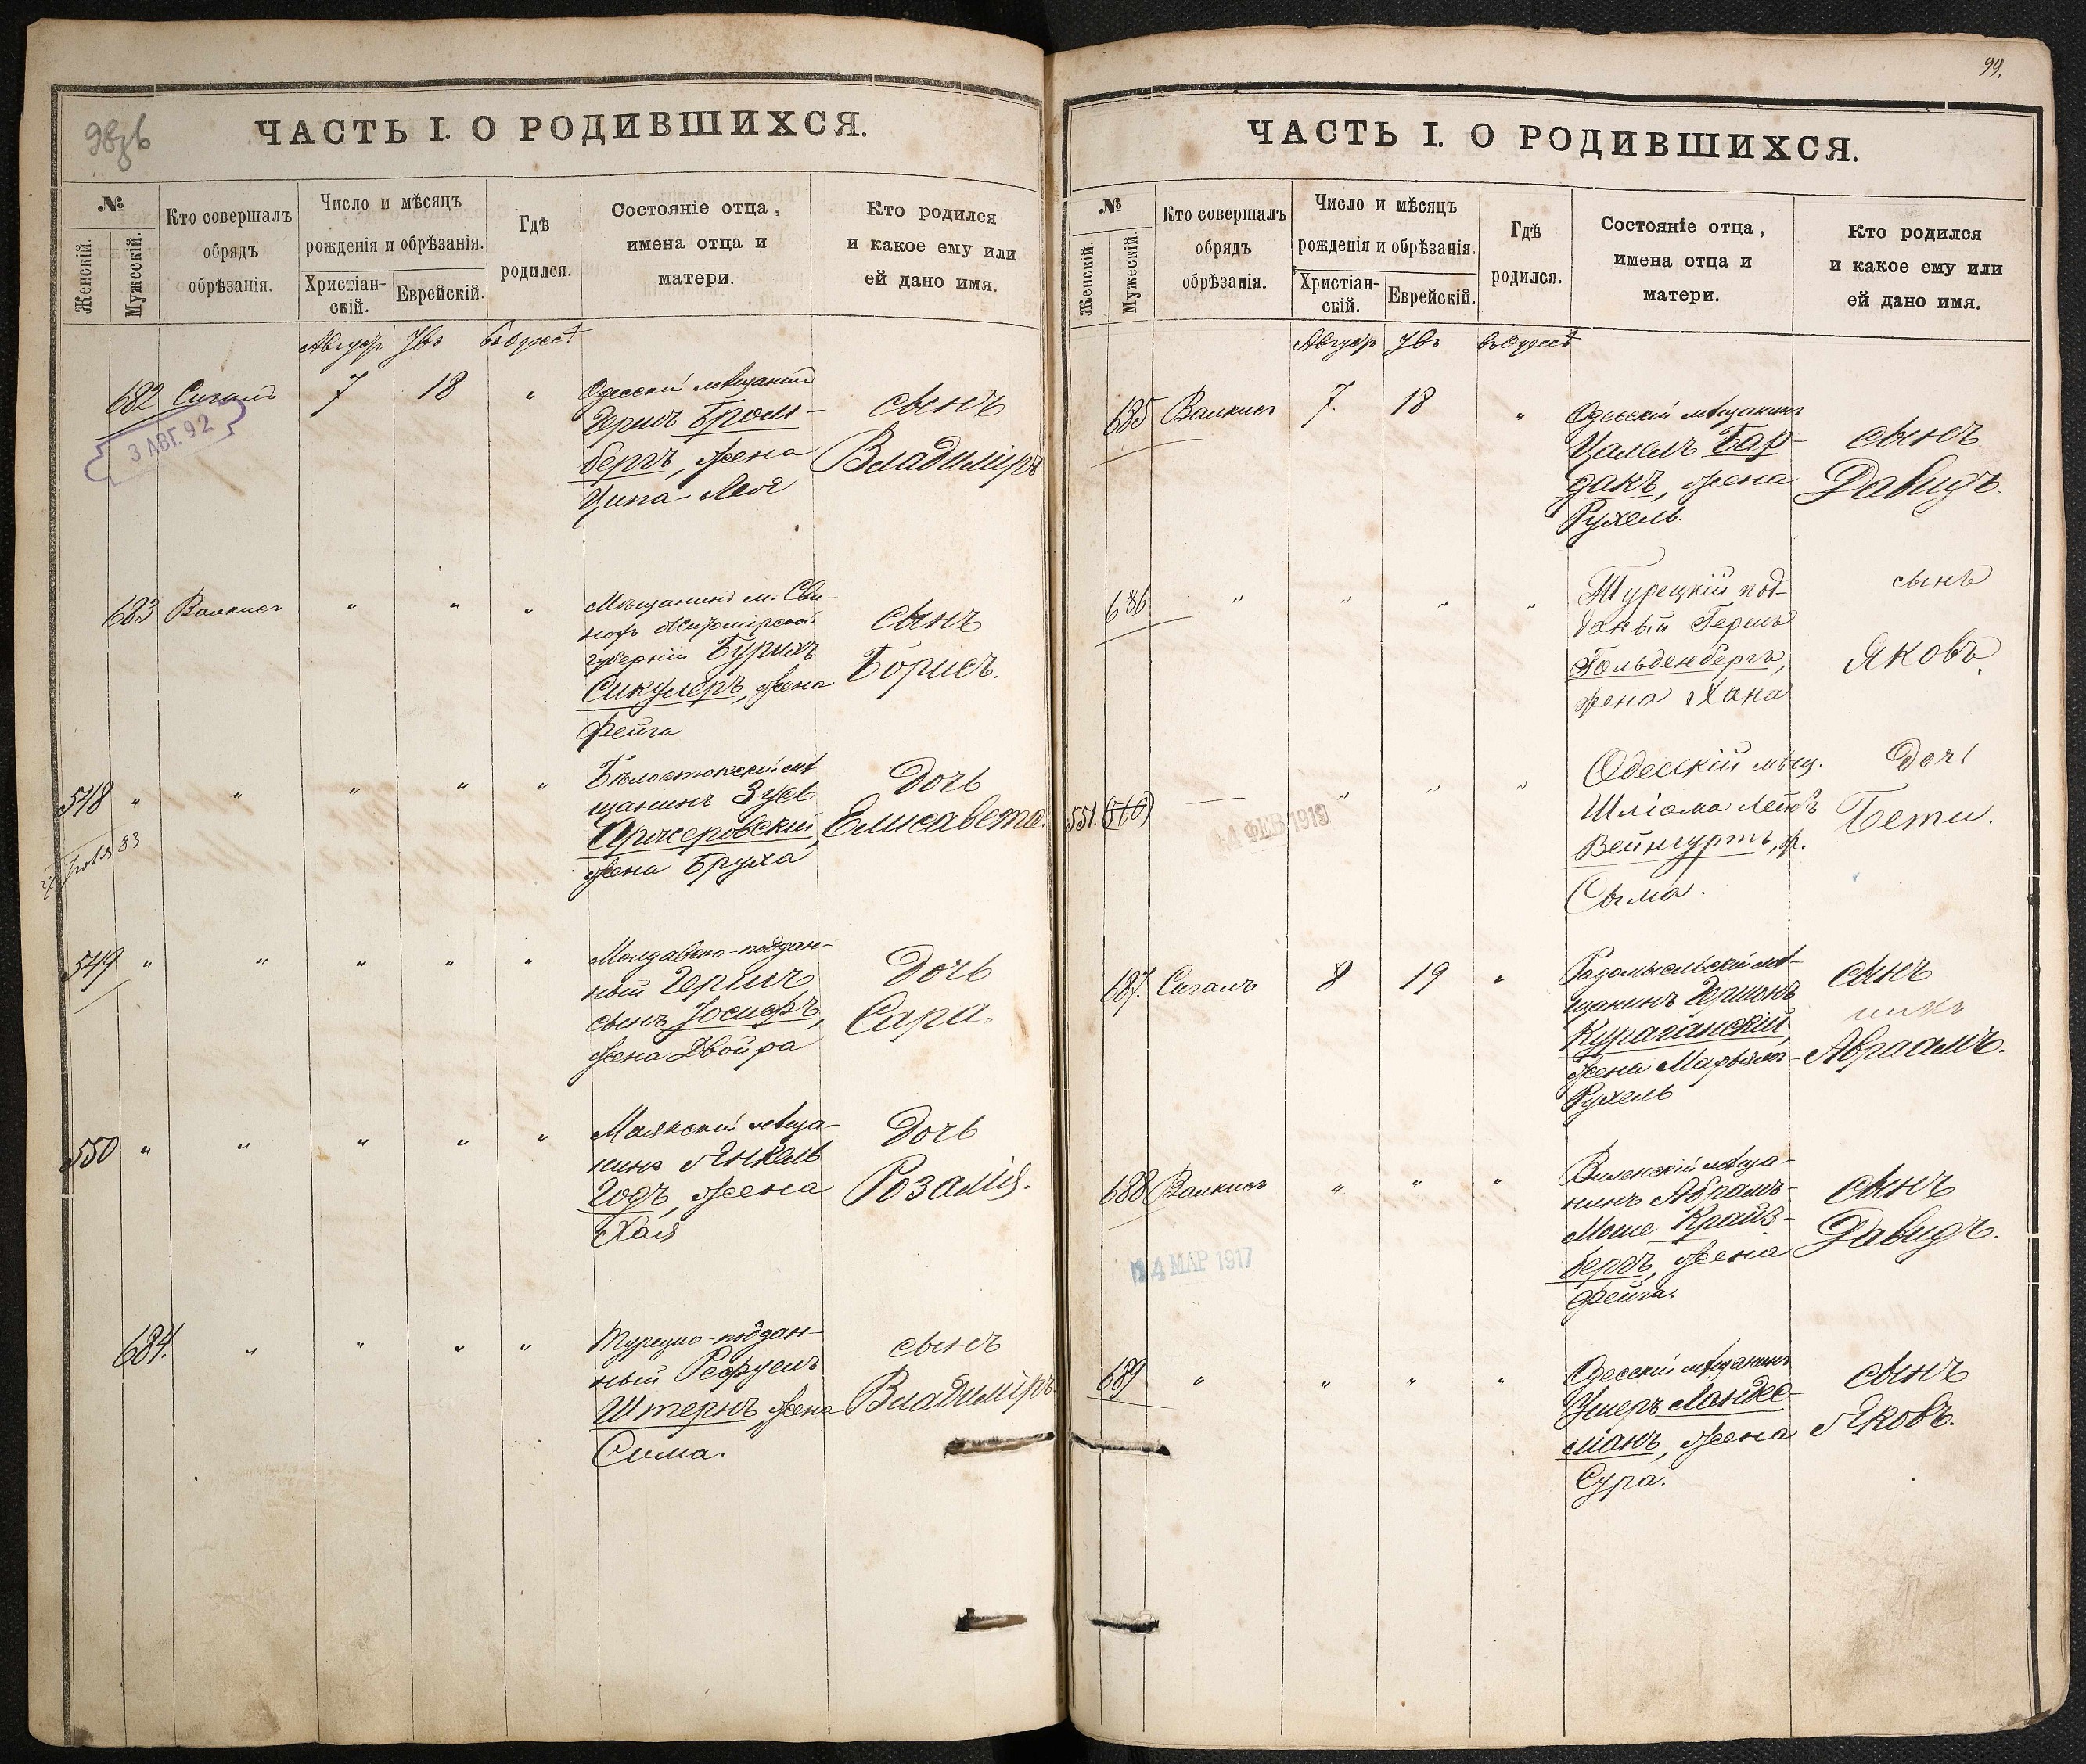 ЧАСТЬ I. О РОДИВШИХСЯ.
№
Женскій.
Мужескій.
Кто совершалъ
обрядъ
обрѣзанія.
Число и мѣсяцъ
рожденія и обрѣзанія.
Христіан-
скій.
Еврейскій.
Гдѣ
родился.
Состояніе отца,
имена отца и
матери.
Кто родился
и какое ему или
ей дано имя.
Август въ Одессѣ
682 Сигалъ 7 18 " Одесскій мѣщанинъ
Гершъ Бром-
бергъ, жена
Ципа-Лея
сынъ
Владиміръ
3 АВГ. 92
683 Валкисъ " " " Мѣщанинъ м.
губерніи
Сикулеръ, жена
Фейга
сынъ
Борисъ.
548 " " " " " Бѣлостокскій мѣ
щанинъ Зусь
жена Бруха
Дочь
Елисавета.
83
549 " " " " " Молдавско-поддан-
ный Гершъ
сынъ Іосифъ,
жена Двойра
Дочь
Сара.
550 " " " " " Маякскій мѣща-
нинъ Янкель
Годъ, жена
Хая
Дочь
Розалія.
684. " " " " Турецко-поддан-
ный
Штернъ, жена
Сима.
сынъ
Владиміръ.
99.
ЧАСТЬ I. О РОДИВШИХСЯ.
№
Женскій.
Мужескій.
Кто совершалъ
обрядъ
обрѣзанія.
Число и мѣсяцъ
рожденія и обрѣзанія.
Христіан-
скій.
Еврейскій.
Гдѣ
родился.
Состояніе отца,
имена отца и
матери.
Кто родился
и какое ему или
ей дано имя.
Август въ Одессѣ
685 Валкисъ 7. 18 " Одесскій мѣщанинъ
Цалелъ Бар-
дакъ, жена
Рухель.
сынъ
Давидъ.
686 " " " " Турецкій под-
даный Гершъ
Гольденбергъ,
жена Хана
сынъ
Яковъ.
551. (560) — " " " Одесскій мѣщ.
Шліома
Вейнгуртъ, ж.
Сыма.
Дочь
Бети.
ФЕВ 1919
687. Сигалъ 8 19 " Радомысльскій мѣ-
щанинъ Гершонъ
Курачанскій,
жена Марьямъ-
Рухель
сынъ
Авраамъ.
688 Валкисъ " " " Виленскій мѣща-
нинъ Абрамъ-
Моше Крайз-
бергъ, жена
Фейга.
сынъ
Давидъ.
24 МАР 1917
689 " " " " Одесскій мѣщанинъ
Ушеръ Ландес-
манъ, жена
Сура.
сынъ
Яковъ.